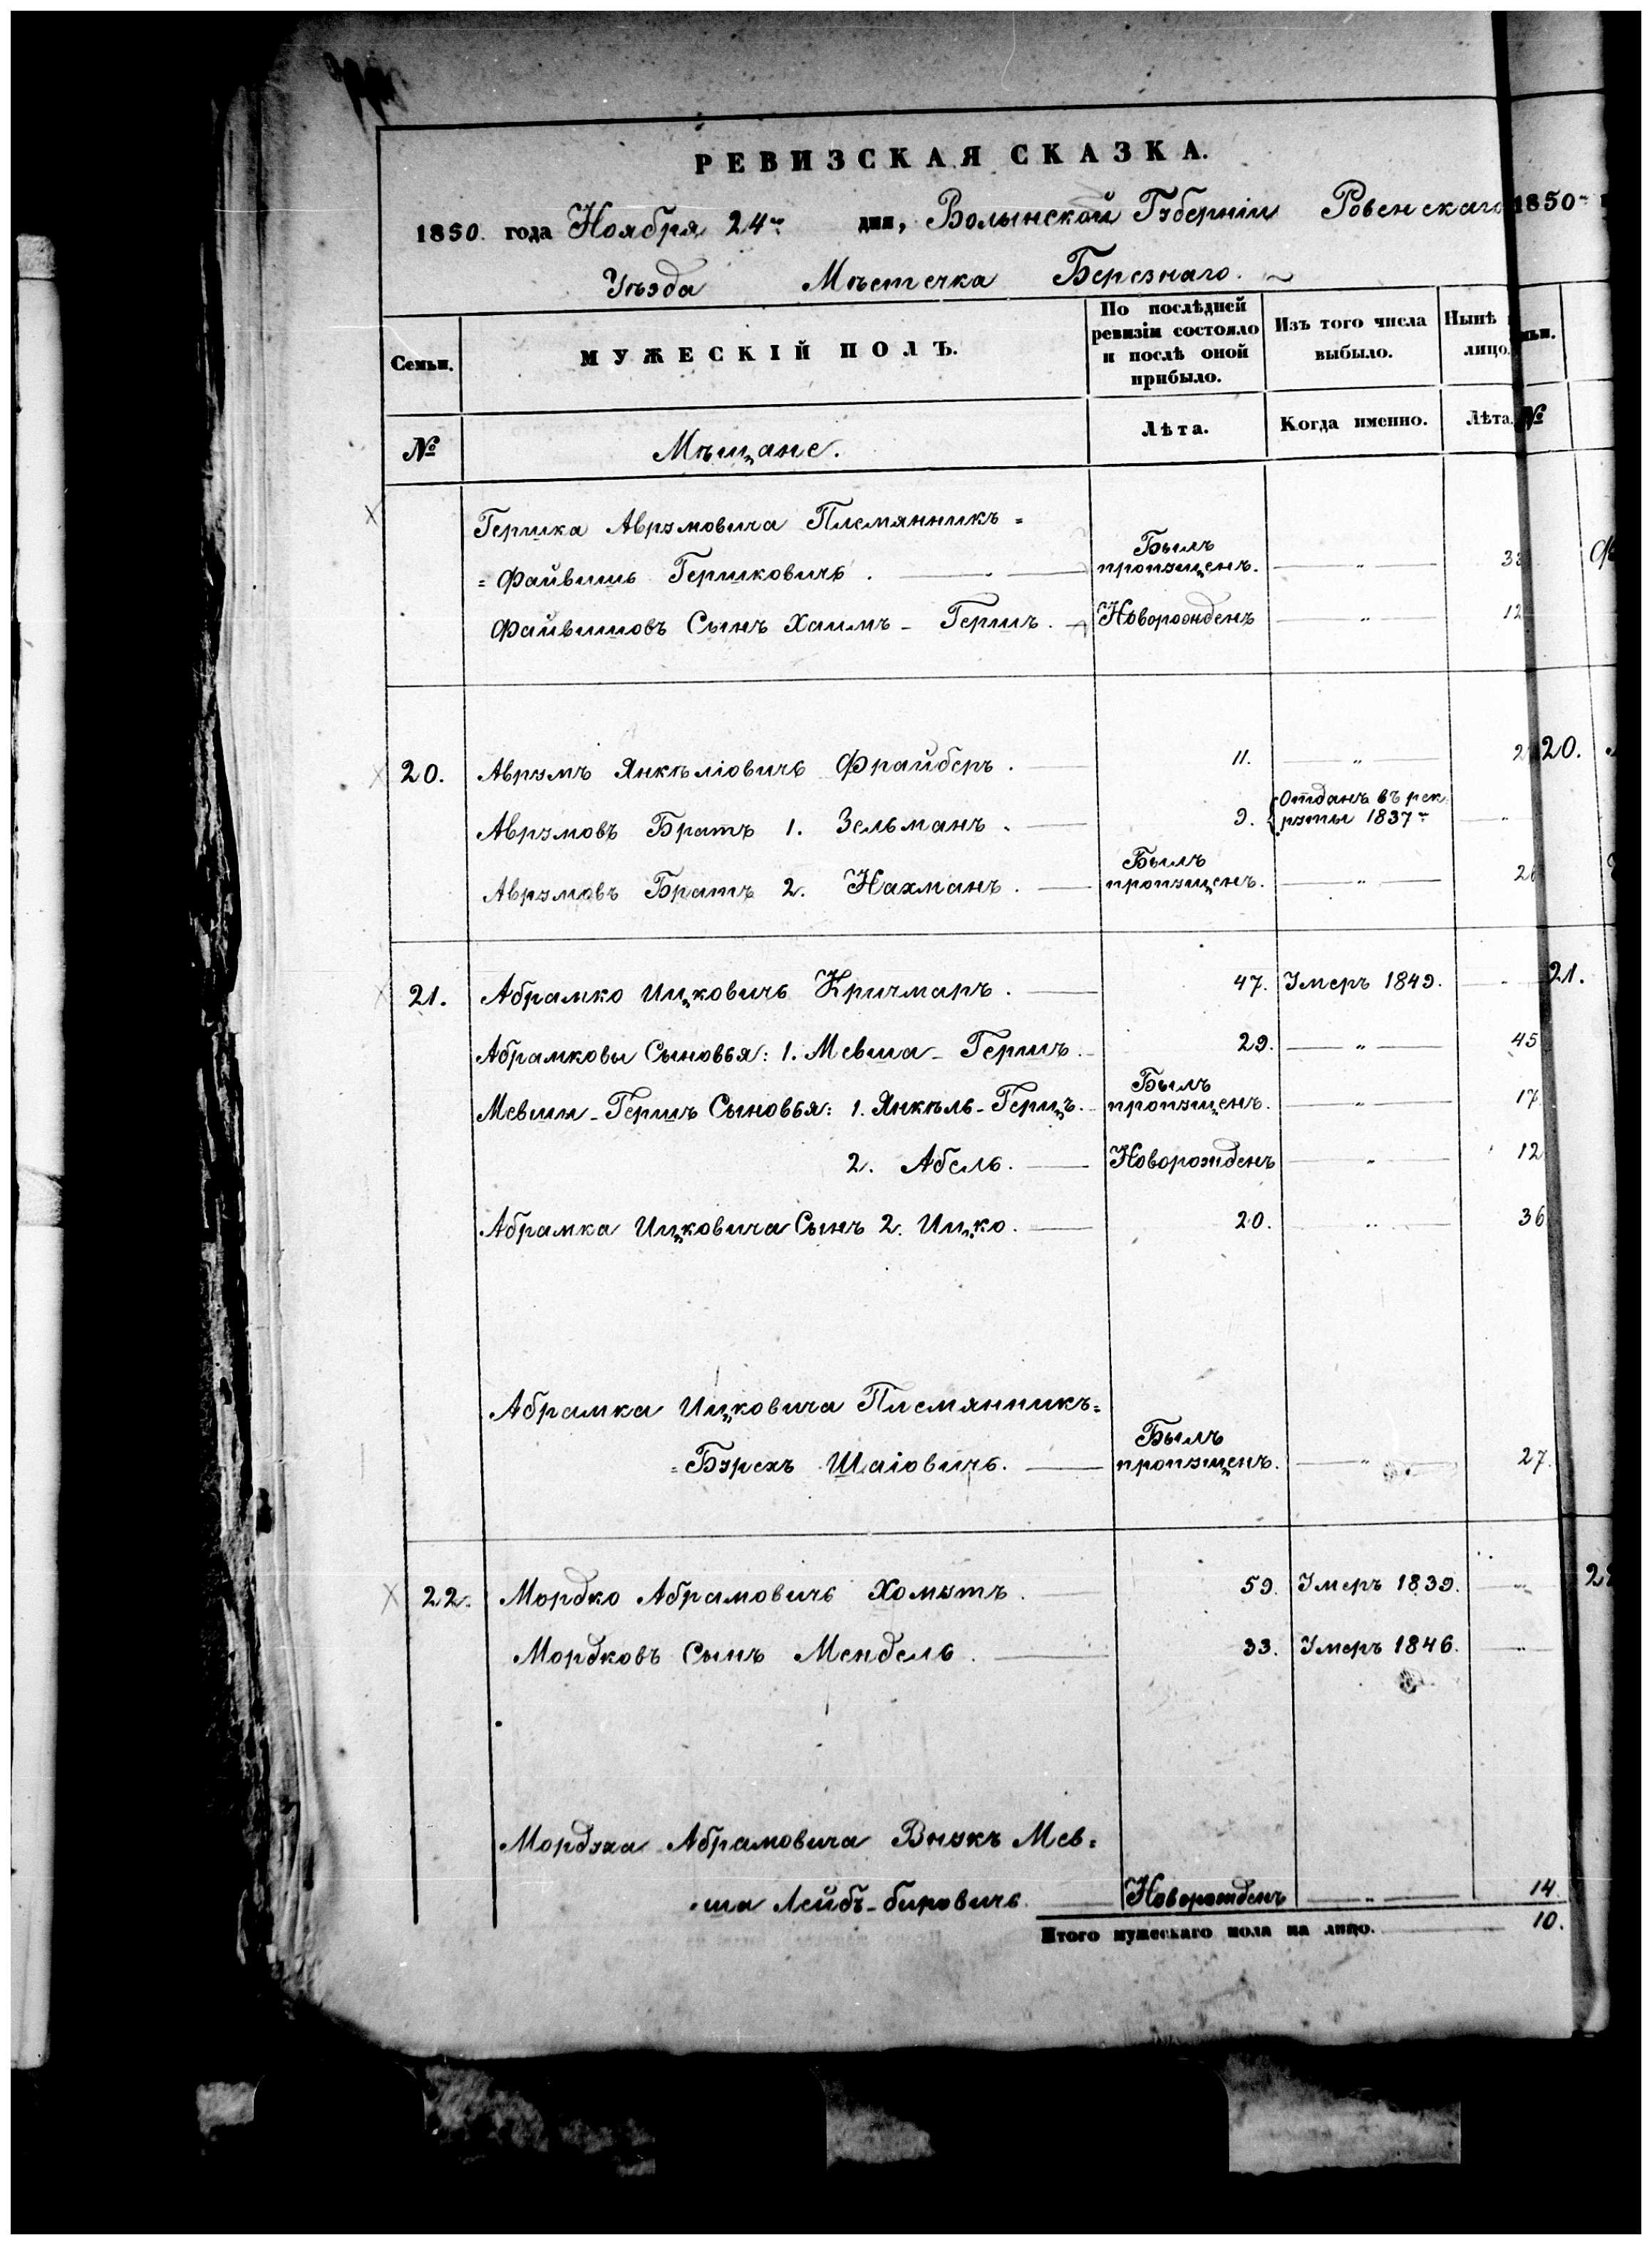 РЕВИЗСКАЯ СКАЗКА.
1850. года Ноября 24го дня, Волынской Губерніи Ровенскаго
Уѣзда Мѣстечка Березнаго.
Семьи. МУЖЕСКІЙ ПОЛЪ. По послѣдней ревизіи состояло и послѣ оной прибыло. Изъ того числа выбыло. Нынѣ лицо.
№ Мѣщане. Лѣта. Когда именно. Лѣта.
Гершка Аврумовича Племянникъ =
= Файвишь Гершковичь. Былъ пропущенъ. — " —
Файвишовъ Сынъ Хаимъ - Гершъ. Новорожденъ — " — 12
20. Аврумъ Янкѣліовичь Фрайберъ. 11. — " —
Аврумовъ Братъ 1. Зельманъ. 9. Отданъ въ рекруты 1837го — " —
Аврумовъ Братъ 2. Нахманъ. Былъ пропущенъ. — " — 26
21. Абрамко Ицковичь Кричмаръ. 47. Умеръ 1849. — " —
Абрамковы Сыновья: 1. Мевша - Гершъ. 29. — " — 45
Мевши - Гершъ Сыновья: 1. Янкѣль - Герцъ. Былъ пропущенъ. — " — 17
2. Абель. Новорожденъ — " — 12
Абрамка Ицковича Сынъ 2. Ицко. 20. — " — 36
Абрамка Ицковича Племянникъ =
= Бурехъ Шаіовичь. Былъ пропущенъ. — " — 27.
22. Мордко Абрамовичь Хомутъ. 59. Умеръ 1839. — " —
Мордковъ Сынъ Мендель. 33.Умеръ 1846. — " —
Мордуха Абрамовича Внукъ Мев=
=ша Лейбъ-бировичь Новорожденъ — " — 14
Итого мужескаго пола на лицо. 10.
1850го
ьи.
№
20.
21.